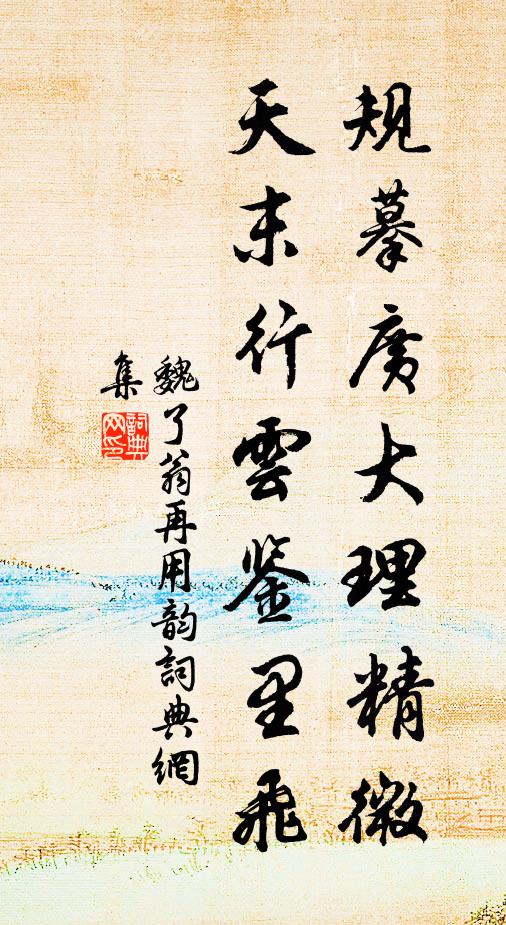 規摹廣大理精微
天末行雲鉴里飛
魏了翁再用韵詞典網
集
詞典網印